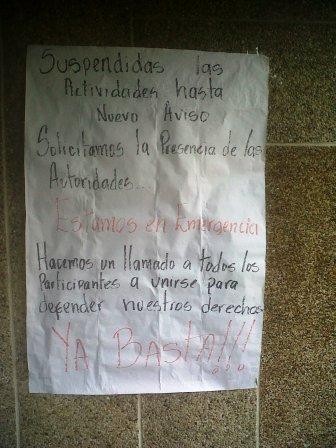 Suspendidas las
Actividades hasta
Nuevo Aviso
Solicitamos la Presencia de las
Autoridades...
Estamos en Emergencia
Hacemos un llamado a todos los
Participantes a unirse para
defender nuestros derechos
Ya Basta!!!